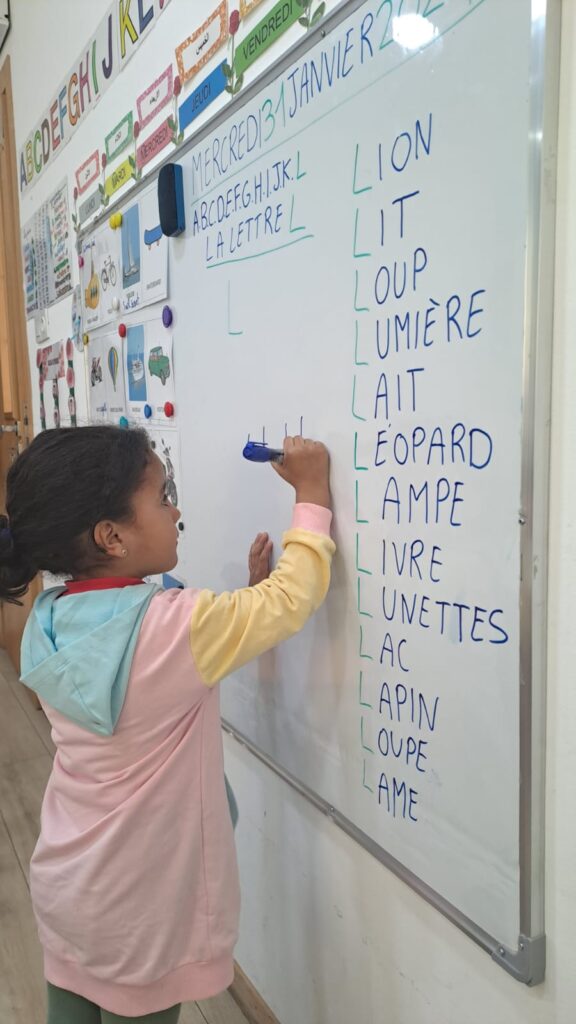 ABCDEFGHIJKL
VENDREDI
JEUDI
MERCREDI
MARDI
MERCREDI 31 JANVIER 2024
A.B.C.D.E.F.G.H.I.J.K.L
LA LETTRE L
L
LION
LIT
LOUP
LUMIÈRE
LAIT
LÉOPARD
LAMPE
LIVRE
LUNETTES
LAC
LAPIN
LOUPE
LAME